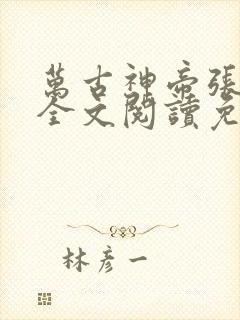 萬古神帝張
全文閱讀免
林彥一